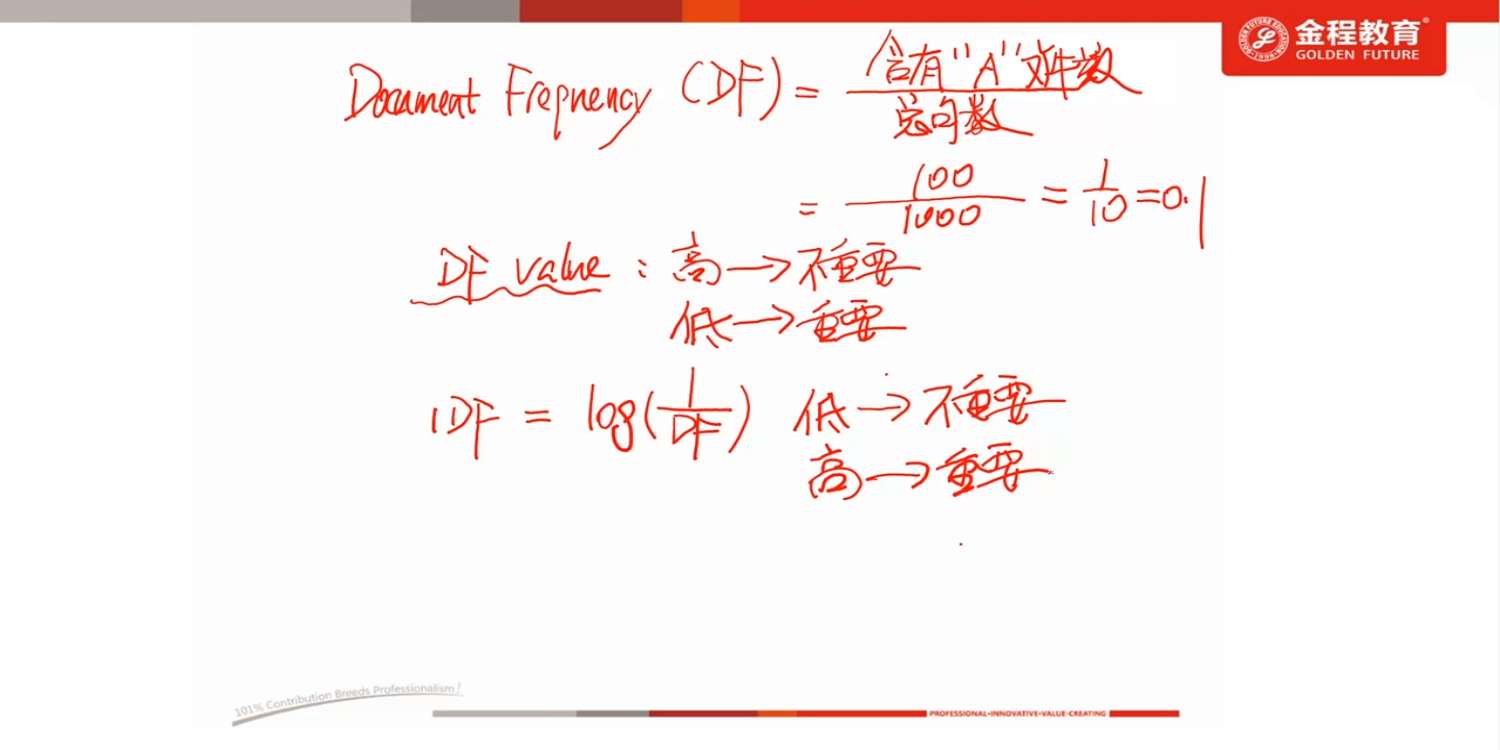 金程教育®
GOLDEN FUTURE
Document Frequency (DF) = 含有"A"文件数 / 总句数
= 100 / 1000 = 1/10 = 0.1
DF value : 高 → 不重要
低 → 重要
IDF = log(1/DF) 低 → 不重要
高 → 重要
101% Contribution Breeds Professionalism!
PROFESSIONAL•INNOVATIVE•VALUE-CREATING